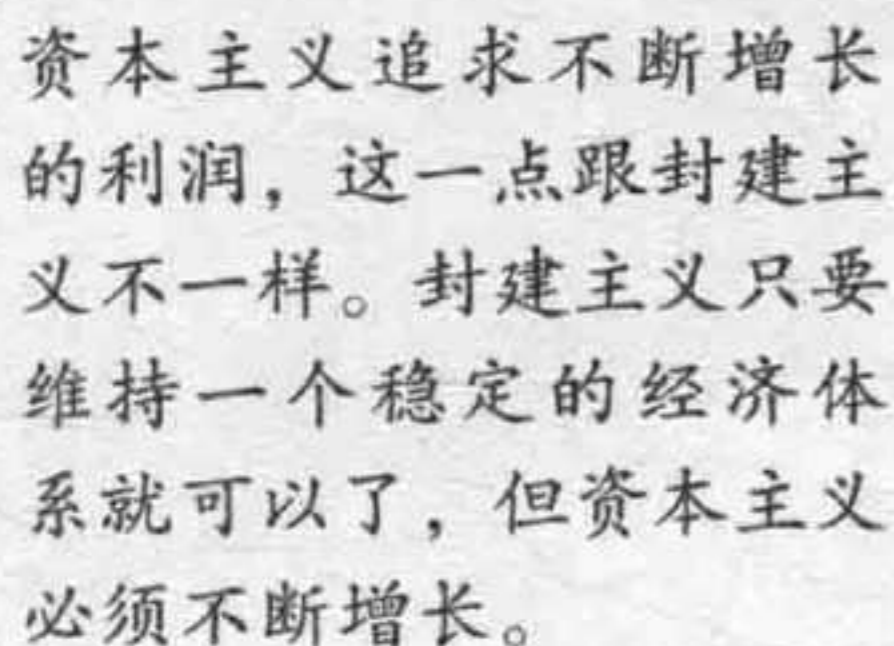 资本主义追求不断增长
的利润，这一点跟封建主
义不一样。封建主义只要
维持一个稳定的经济体
系就可以了，但资本主义
必须不断增长。